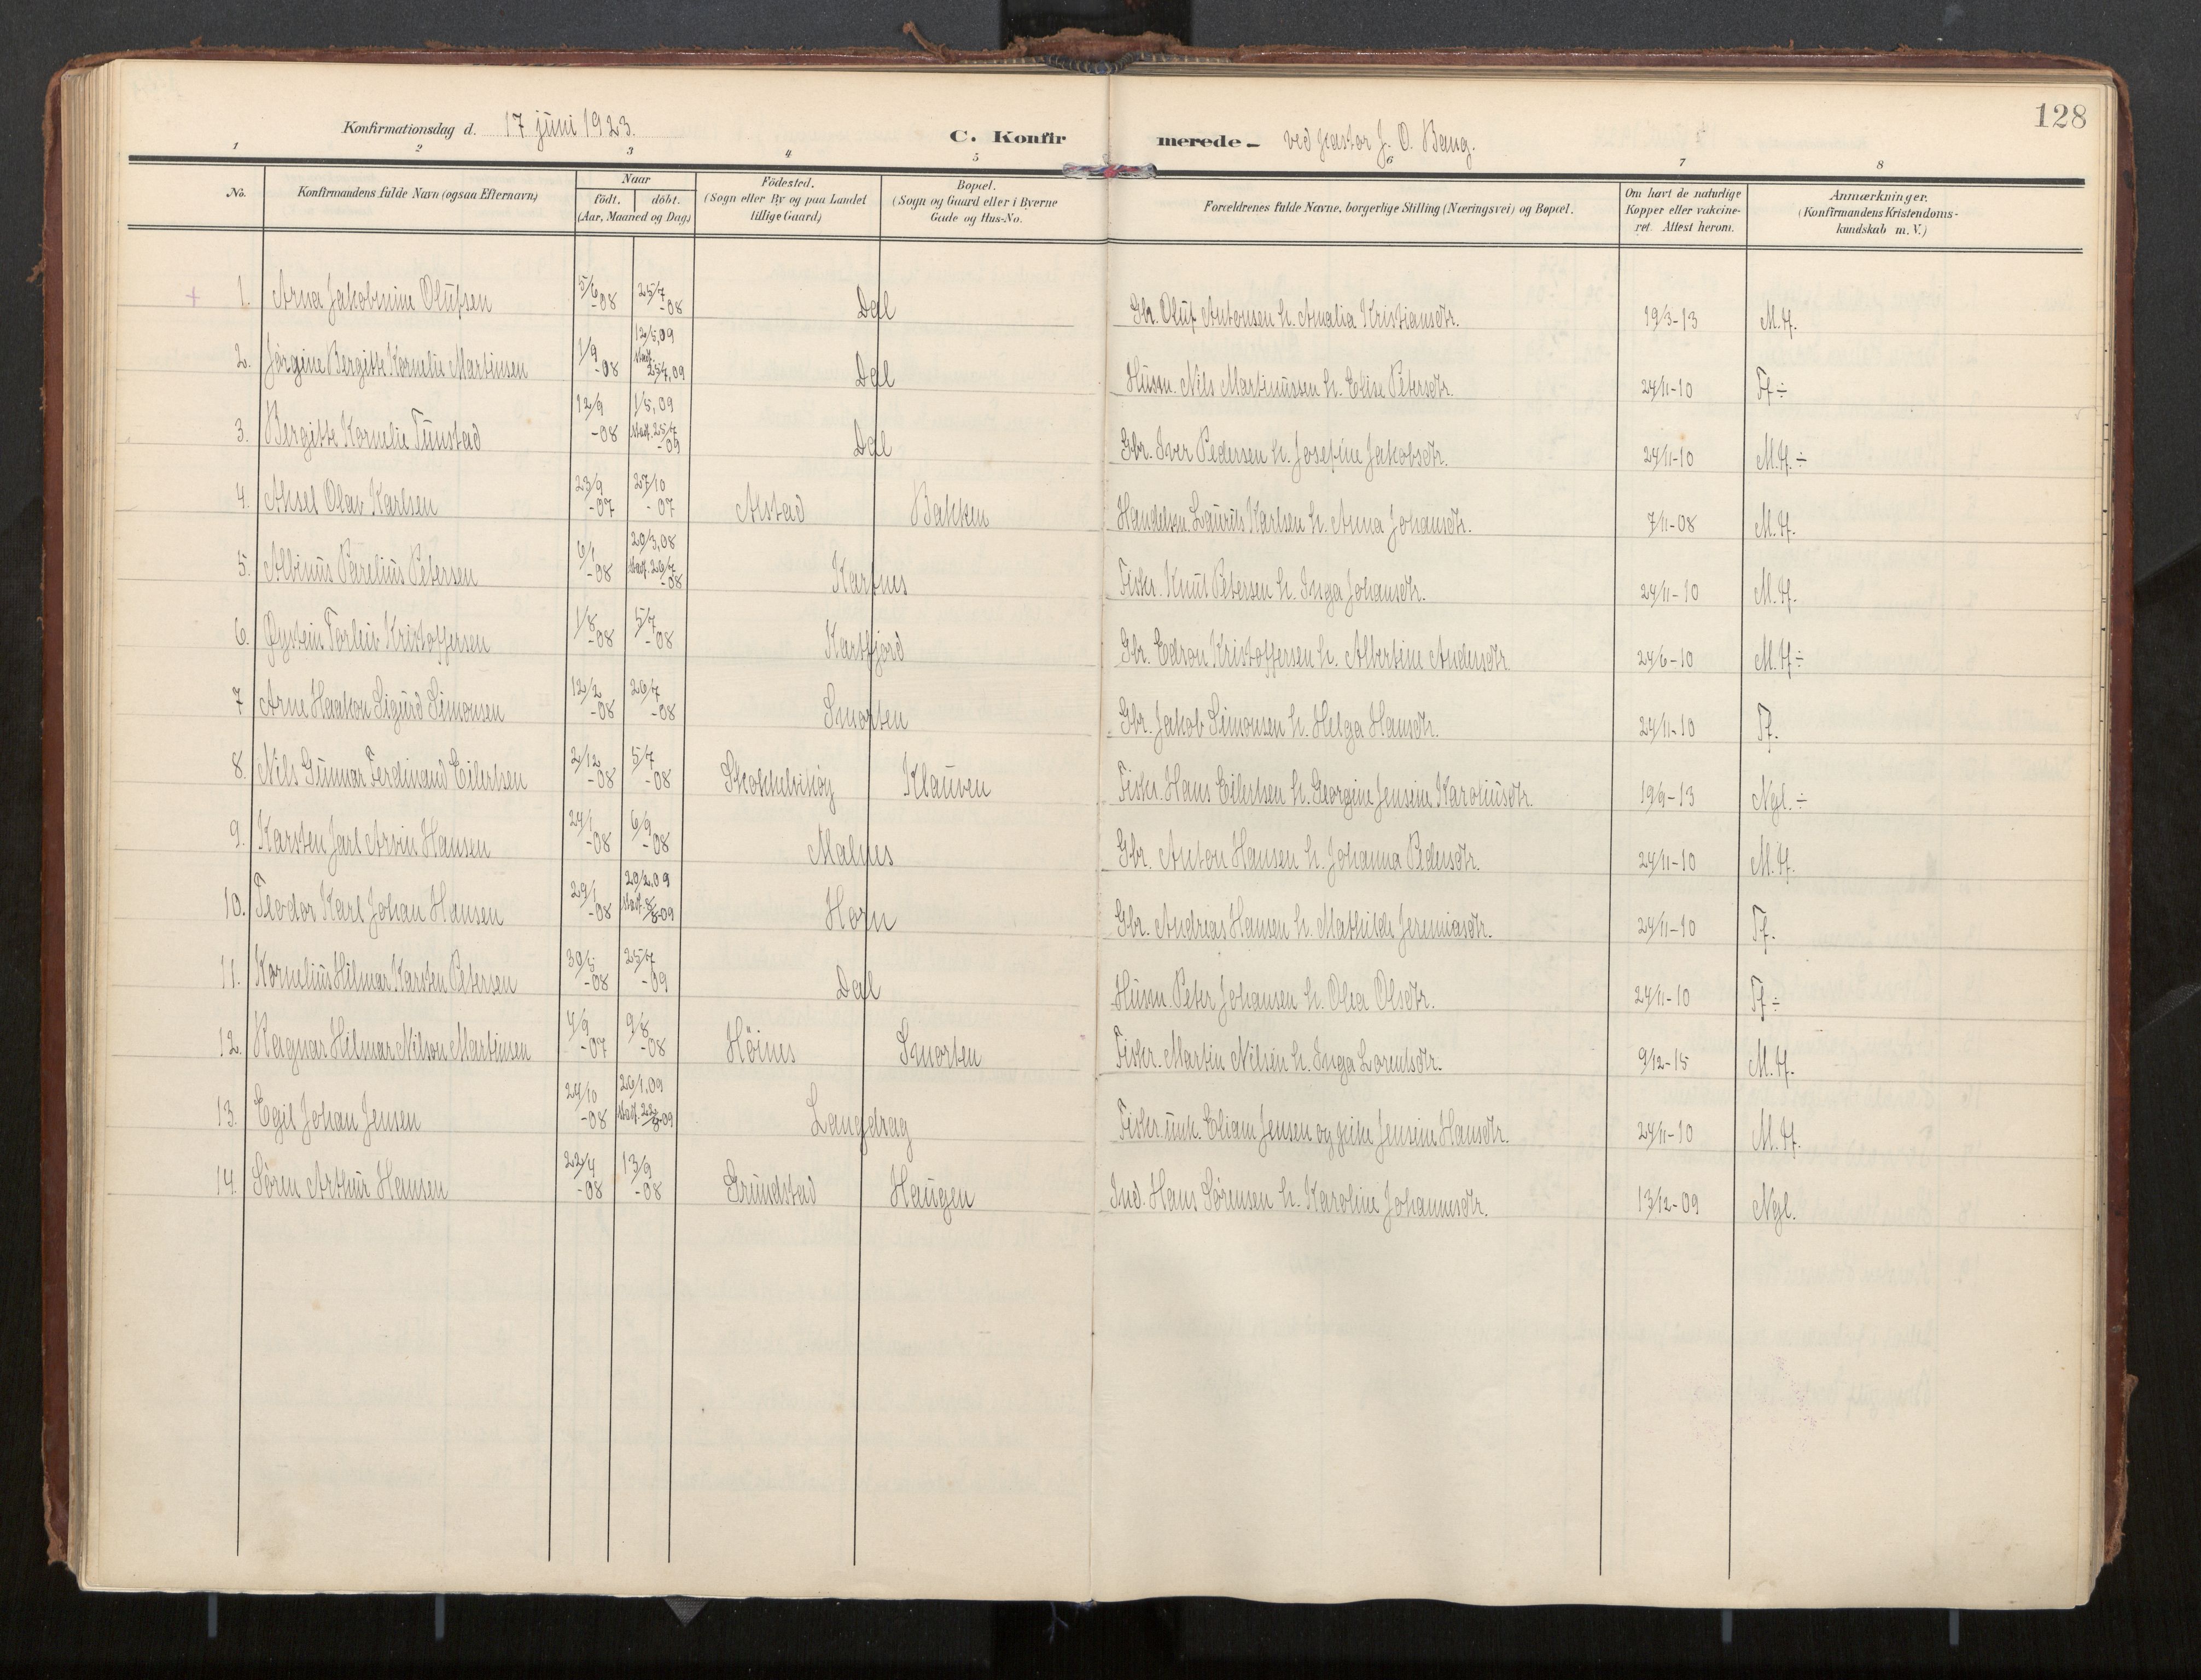 128
Konfirmationsdag d. 17 juni 1923.
C. Konfirmerede - ved pastor J. O. Bang.
1 2 3 4 5 6 7 8
No.
Konfirmandens fulde Navn (ogsaa Efternavn)
Naar
födt. döbt.
(Aar, Maaned og Dag)
Födested.
(Sogn eller By og paa Landet tillige Gaard)
Bopæl.
(Sogn og Gaard eller i Byerne Gade og Hus-No.
Forældrenes fulde Navne, borgerlige Stilling (Næringsvei) og Bopæl.
Om havt de naturlige Kopper eller vakcineret. Attest herom.
Anmærkninger.
(Konfirmandens Kristendomskundskab m. V.)
+ 1. Arna Jakobmine Olufsen 5/6 -08 25/7 -08 Dal Gbr. Oluf Antonsen h. Amalia Kristiansdtr. 19/3-13 M.H.
2. Jørgine Bergitte Kornelie Martinsen 1/9 -08 12/5,09 stadf. 25/7,09 Dal Husm. Nils Martinussen h. Elise Petersdtr. 24/11-10 Tf ÷
3. Bergitte Kornelie Tunstad 12/9 -08 1/5,09 stadf. 25/7 -09 Dal Gbr. Iver Pedersen h. Josefine Jakobsdtr. 24/11-10 M.H. ÷
4. Aksel Olav Karlsen 23/9 -07 27/10 -07 Alstad Bakken Handelsm. Laurits Karlsen h. Anna Johansdtr. 7/11-08 M.H.
5. Albinus Parelius Petersen 6/1 -08 20/3,08 stadf. 26/7 -08 Kartnes Fisker. Knut Petersen h. Inga Johansdtr. 24/11-10 M.H.
6. Øystein Torleiv Kristoffersen 1/8 -08 5/7 -08 Kartfjord Gbr. Edron Kristoffersen h. Albertine Andersdtr. 24/6-10 M.H ÷
7 Arne Haakon Sigurd Simonsen 12/2 -08 26/7 -08 Smorten Gbr. Jakob Simonsen h. Helga Hansdtr. 24/11-10 Tf.
8. Nils Gunnar Ferdinand Eilertsen 2/12 -08 5/7 -08 Skokkelvikøy Klauven Fisker. Hans Eilertsen h. Georgine Jensine Karoliusdtr. 19/9-13 Ngl. ÷
9. Karsten Jarl Arvin Hansen 24/1 -08 6/9 -08 Malnes Gbr. Anton Hansen h. Johanna Pedersdtr. 24/11-10 M.H.
10. Teodor Karl Johan Hansen 29/1 -08 20/2,09 stadf. 8/8-09 Horn Gbr. Andreas Hansen h. Mathilde Jeremiasdtr. 24/11-10 Tf.
11. Kornelius Hilmar Karsten Petersen 30/5 -08 25/7 -09 Dal Husm. Peter Johansen h. Olea Olsdtr. 24/11-10 Tf ÷
12. Ragnar Hilmar Nilson Martinsen 4/9 -07 9/8 -08 Höines Smorten Fisker. Martin Nilsen h. Inga Lorentsdtr. 9/12-15 M.H.
13. Egil Johan Jensen 24/10 -08 26/1,09 stadf. 22/8-09 Langdrag Fisker. unk. Eliam Jensen og pike Jensine Hansdtr. 24/11-10 M.H.
14. Søren Arthur Hansen 22/4 -08 13/9 -08 Grundstad Haugen Ind. Hans Sørensen h. Karoline Johannesdtr. 13/12-09 Ngl.